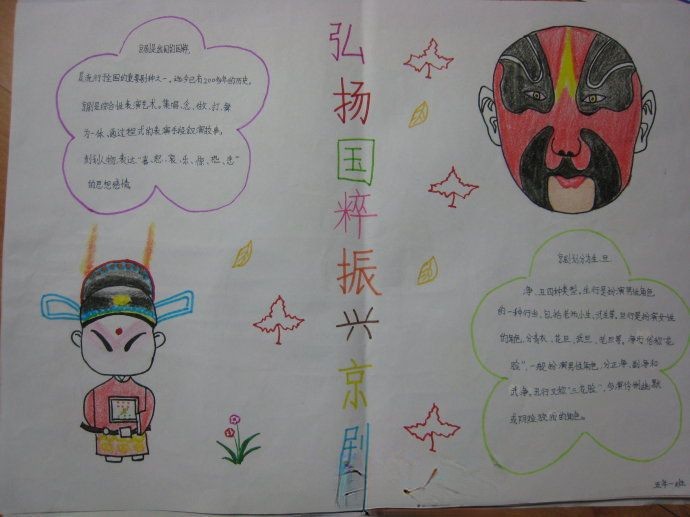 弘扬国粹振兴京剧
京剧是我们的国粹,
是流行于全国的重要剧种之一,迄今已有200多年的历史。
京剧是综合性表演艺术。集唱、念、做、打、舞
为一体、通过程式的表演手段叙演故事,
刻划人物,表达“喜、怒、哀、乐、惊、恐、悲”
的思想感情。
京剧划分为生、旦
净、丑四种类型。生行是扮演男性角色
的一种行当,包括老生小生、武生等。旦行是扮演女性
的角色,分青衣、花旦、武旦、老旦等。净行俗称“花
脸”,一般扮演男性角色,分正净、副净和
武净。丑行又称“三花脸”,多演伶俐幽默
或阴险狡猾的角色。
五年一班